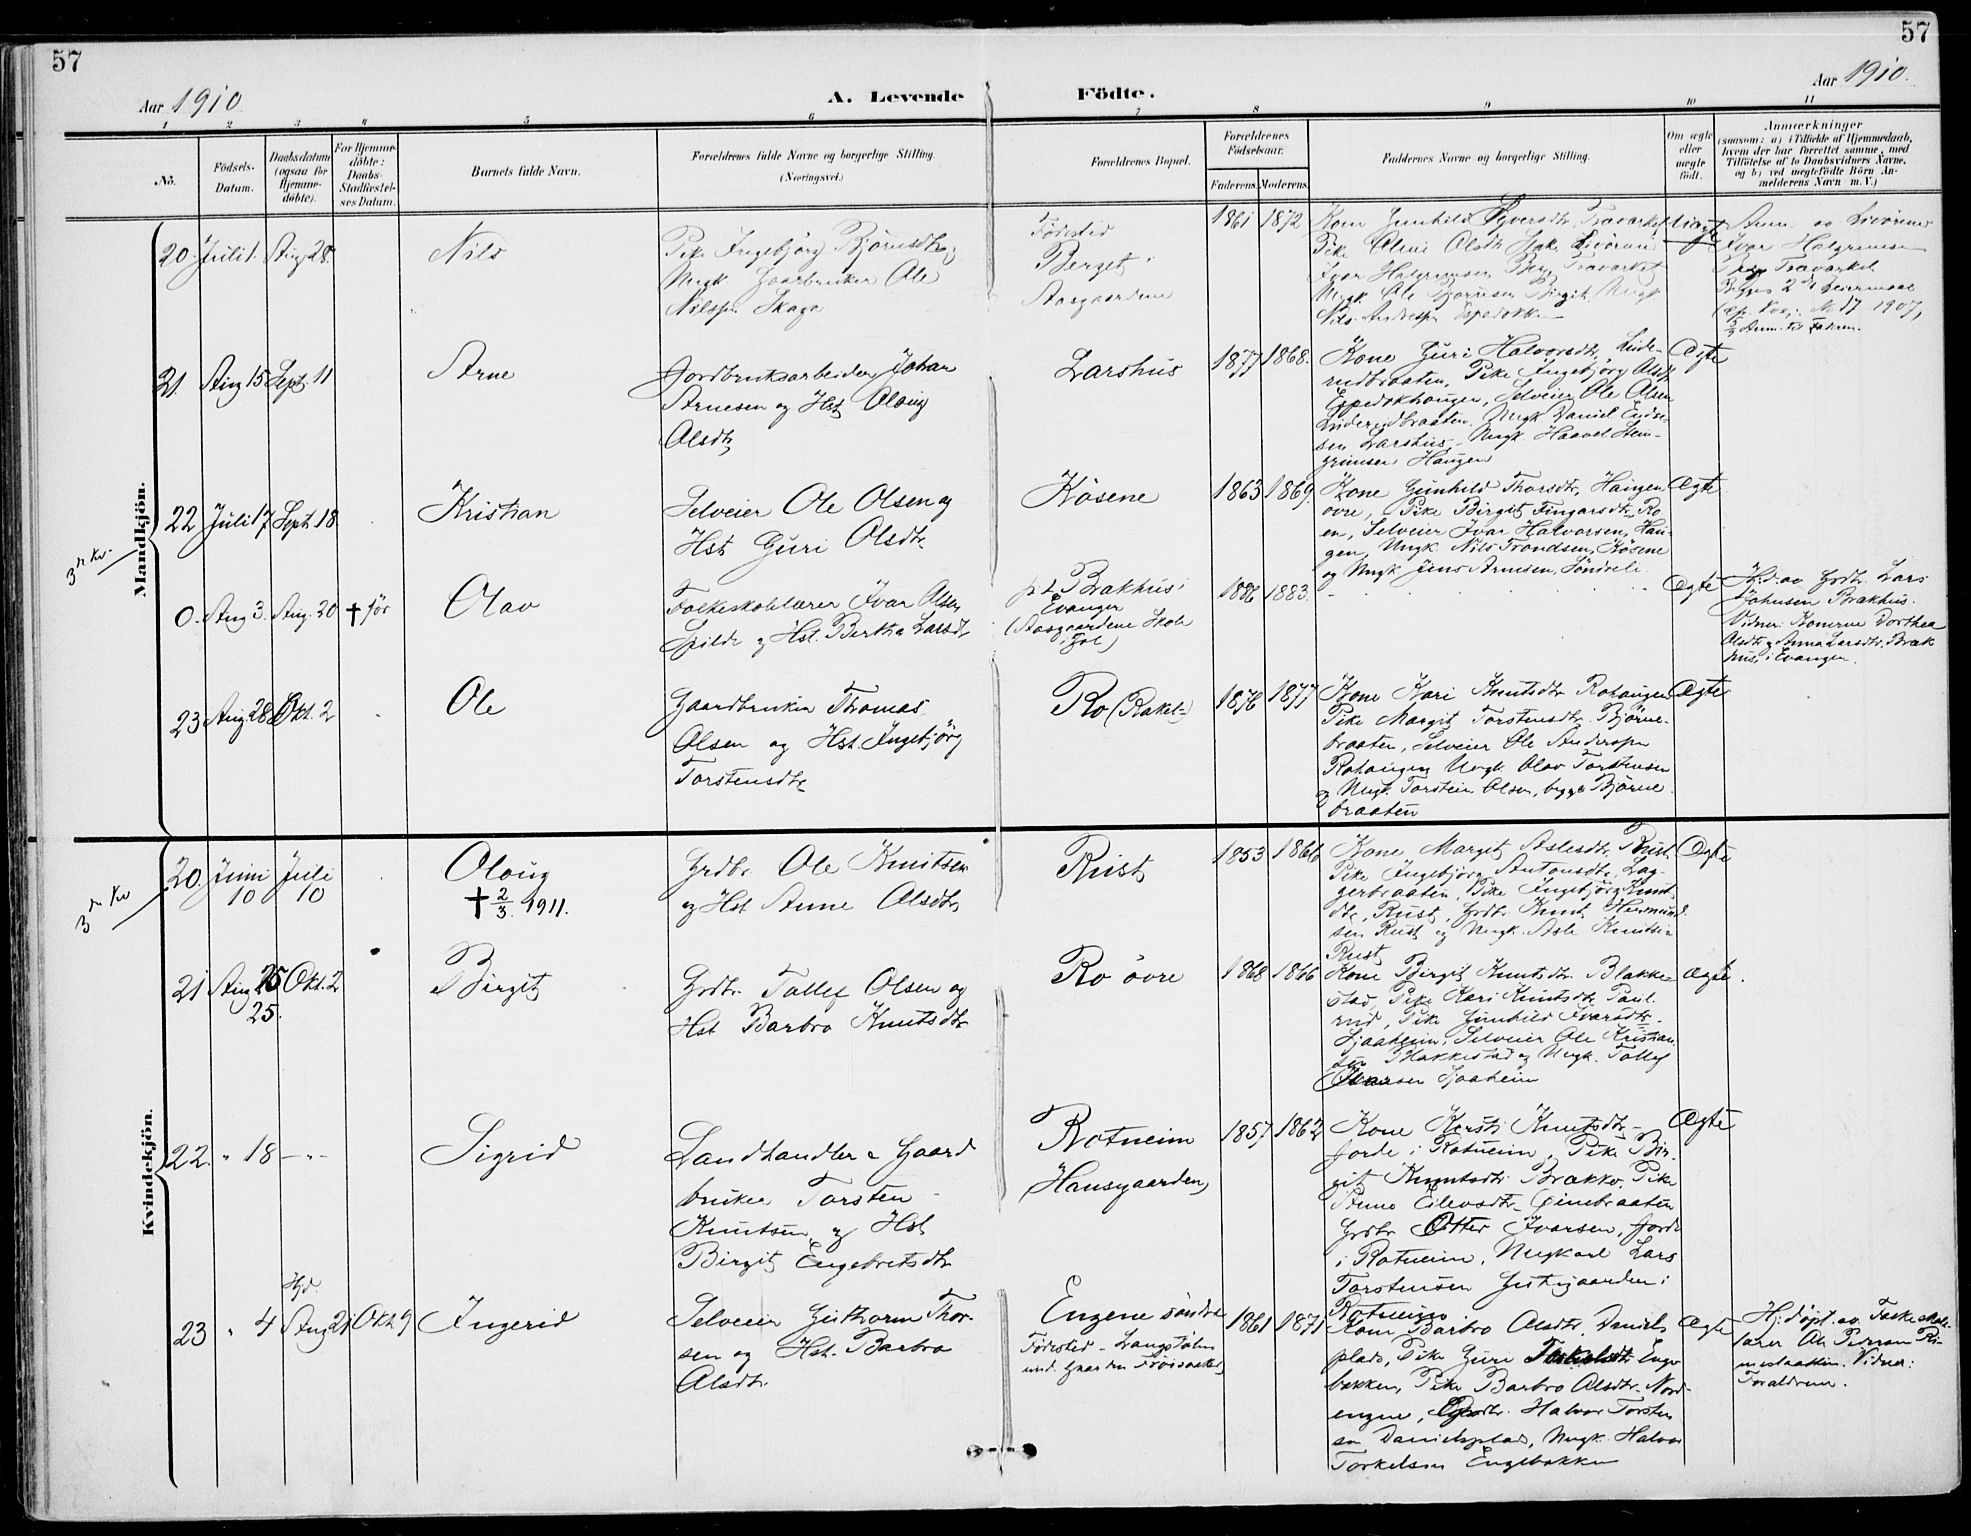 57
57
Aar 1910.
A. Levende
Födte.
Aar 1910.
1 2 3 4 5 6 7 8 9 10 11
No.
Födsels-
Datum.
Daabsdatum
(ogsaa for
Hjemme-
döbte).
For Hjemme-
döbte:
Daabs-
Stadfæstel-
ses Datum.
Barnets fulde Navn.
Forældrenes fulde Navne og borgerlige Stilling.
(Næringsvei.)
Forældrenes Bopæl.
Forældrenes
Födselsaar.
Faderens. Moderens.
Faddernes Navne og borgerlige Stilling.
Om ægte
eller
uægte
födt.
Anmærkninger
(saasom: a) i Tilfælde af Hjemmedaab,
hvem der har forrettet samme, med
Tilföielse af to Daabsvidners Navne,
og b) ved uægtefödte Börn An-
melderens Navn m. V.)
Mandkjön.
3 die Kv.
20. Juli 1. Aug. 28.
Nils
Pike Ingebjörg Björnsdtr. og
Ungk. Gaardbruker Ole
Nilssen Skaga
Födested
Berget
Aasgaardene
1861 1872
Kone Gunhild
Ivar Halgrimsen
Ungk. Ole Björnsen
uægte
Ivar Halgrimsen
No 17 1907,
21. Aug 15 Sept. 11
Arne
Jordbruksarbeider Johan
Arnesen og Hst. Oloug
Olsdtr.
Larshus
1877 1868.
Kone Guri Halvorsdtr. Lude-
rudbraaten, Pike Ingebjörg Olsdtr.
Espedokhaugen, Selveier Ole Olsen
Luderudbraaten, Ungk. Daniel Endre-
sen Larshus, Ungk. Haavel Hem-
grimsen Haugen
Ægte
22 Juli 17 Sept. 18.
Kristian
Selveier Ole Olsen og
Hst. Guri Olsdtr.
Kösene
1863 1869
Kone Gunhild Thorsdtr. Haugen
övre, Pike Birgit Fingarsdtr. Ro-
en, Selveier Ivar Halvorsen, Hau-
gen, Ungk. Nils Trondsen, Kösene
og Ungk. Jens Arnesen, Söndreli.
Ægte
0. Aug 3. Aug. 20 † för
Olav
Folkeskolelærer Ivar Olsen
Spilde og Hst. Bertha Larsdtr.
p. t. Brakhus
Evanger
(Aasgaardene Skole
i Gol)
1886 1883.
Ægte
Hjd. av Grdbr. Lars
Johnsen Brakhus.
Vidner: Konerne Dorthea
Olsdtr. og Anna Larsdtr. Brak-
hus, i Evanger.
23 Aug 28 Okt. 2
Ole
Gaardbruker Thomas
Olsen og Hst. Ingebjörg
Torstensdtr.
Ro (Rakel-)
1876 1877
Kone Kari Knutsdtr. Rohaugen
Pike Margit Torstensdtr. Björne-
braaten, Selveier Ole Andersen
Rohaugen, Ungk. Olav Torstensen
og Ungk. Torstein Olsen, begge Björne-
braaten
Ægte
Kvindekjön.
3 die Kv
20. Juni
10
Juli
10
Oloug
† 2/3. 1911.
Grdbr. Ole Knutsen
og Hst. Anne Olsdtr.
Rust
1853 1866
Kone Margit Aslesdtr. Rust,
Pike Ingebjörg Antonsdtr. Lag-
gerbraaten, Pike Ingebjörg Knuts-
dtr., Rust, Grdbr. Knut Hermund-
sen Rust og Ungk. Asle Knutsen
Rust
Ægte
21 Aug 25
25.
Okt. 2
Birgit
Grdbr. Tollef Olsen og
Hst. Barbro Knutsdtr.
Ro övre
1868 1866
Kone Birgit Knutsdtr. Blakke-
stad, Pike Kari Knutsdtr. Paul-
rud, Pike Gunhild Ivarsdtr.
Sjaaheim, Selveier Ole Kristian-
sen Blakkestad og Ungk. Tollef
Ivarsen Sjaaheim
Ægte
22. " 18 - " -
Sigrid
Landhandler & Gaard-
bruker Torsten
Knutsen og Hst.
Birgit Engebretsdtr.
Rotneim
Hansgaarden
1857 1862
Kone Kersti Knutsdtr.
Jorde i Rotneim, Pike Bir-
git Knutsdtr. Brakko, Pike
Anne Eilevsdtr.
Grdbr. Otter Ivarsen, Jorde
i Rotneim, Ungkarl Lars
Torstensen Gutugaarden i
Rotneim
Ægte
23 " 4
Hjd.
Aug 21 Okt 9
Ingerid
Selveier Guthorm Thor-
sen og Hst. Barbro
Olsdtr.
Engene söndre
Födested - Langstölen
und. Gaarden Fröisaaker
1861 1871
Kone Barbro Olsdtr. Daniels-
plads, Pike Guri Torkelsdtr. Enge-
bakken, Pike Barbro Olsdtr. Nord-
engene, Grdbr. Halvor Torsten-
sen Danielsplads, Ungk. Halvor
Torkelsen Engebakken
Ægte
Hj. döpt. av Folkeskole-
lærer Ole Pedersen
Vidner:
Foreldrene.